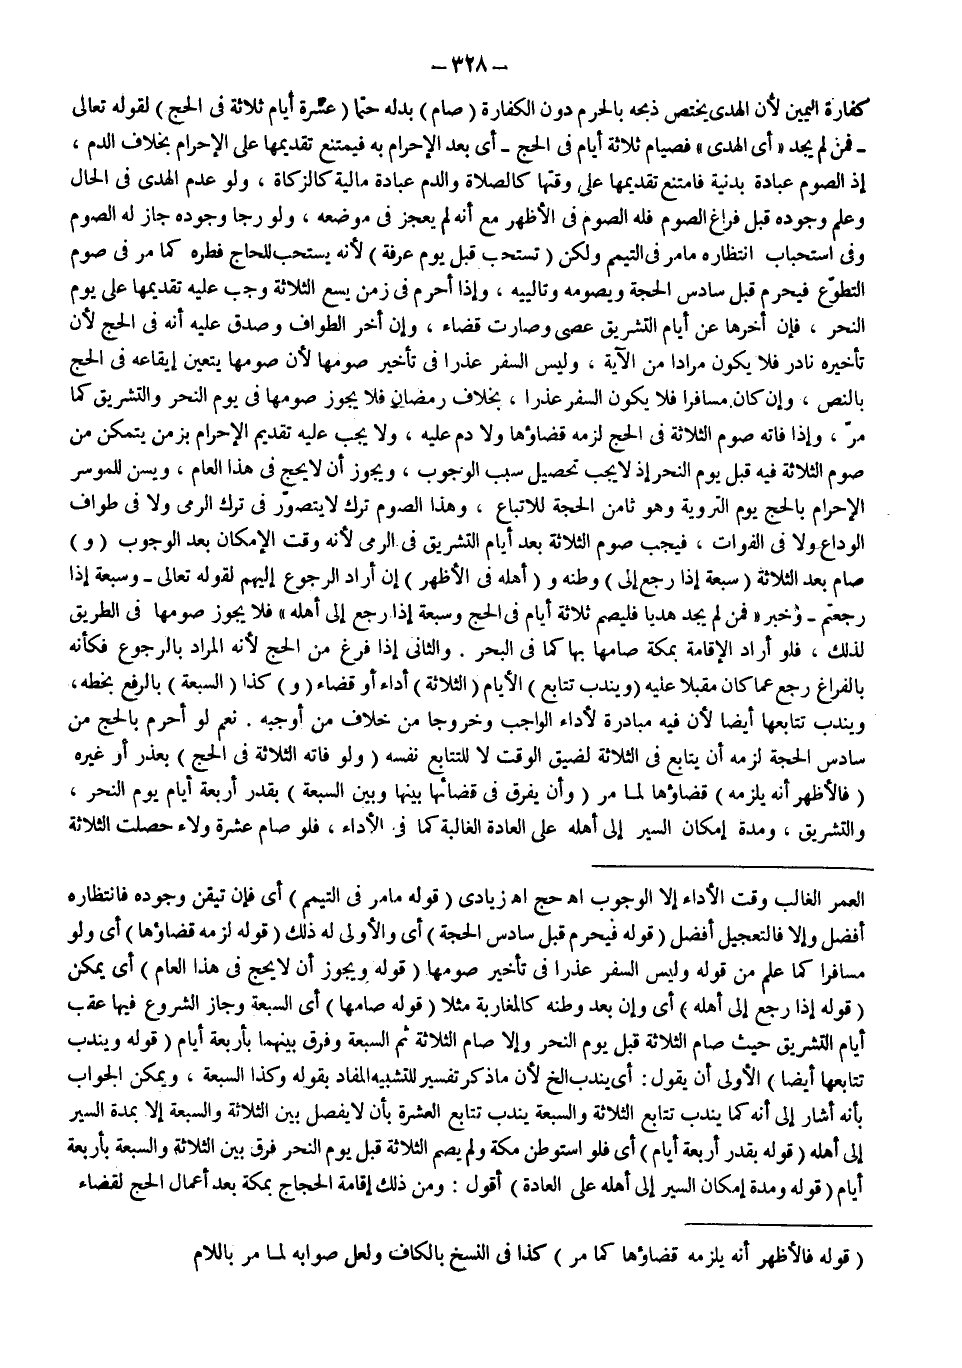 – ٣٢٨ –
كفارة اليمين لأن الهدى يختص ذبحه بالحرم دون الكفارة ( صام ) بدله حتما ( عشرة أيام ثلاثة فى الحج ) لقوله تعالى
ـ فمن لم يجد « أى الهدى » فصيام ثلاثة أيام فى الحج ـ أى بعد الإحرام به فيمتنع تقديمها على الإحرام بخلاف الدم ،
إذ الصوم عبادة بدنية فامتنع تقديمها على وقتها كالصلاة والدم عبادة مالية كالزكاة ، ولو عدم الهدى فى الحال
وعلم وجوده قبل فراغ الصوم فله الصوم فى الأظهر مع أنه لم يعجز فى موضعه ، ولو رجا وجوده جاز له الصوم
وفى استحباب انتظاره مامر فى التيمم ولكن ( تستحب قبل يوم عرفة ) لأنه يستحب للحاج فطره كما مر فى صوم
التطوّع فيحرم قبل سادس الحجة ويصومه وتالييه ، وإذا أحرم فى زمن يسع الثلاثة وجب عليه تقديمها على يوم
النحر ، فإن أخرها عن أيام التشريق عصى وصارت قضاء ، وإن أخر الطواف وصدق عليه أنه فى الحج لأن
تأخيره نادر فلا يكون مرادا من الآية ، وليس السفر عذرا فى تأخير صومها لأن صومها يتعين إيقاعه فى الحج
بالنص ، وإن كان مسافرا فلا يكون السفر عذرا ، بخلاف رمضان فلا يجوز صومها فى يوم النحر والتشريق كما
مرّ ، وإذا فاته صوم الثلاثة فى الحج لزمه قضاؤها ولا دم عليه ، ولا يجب عليه تقديم الإحرام بزمن يتمكن من
صوم الثلاثة فيه قبل يوم النحر إذ لا يجب تحصيل سبب الوجوب ، ويجوز أن لايحج فى هذا العام ، ويسن للموسر
الإحرام بالحج يوم التروية وهو ثامن الحجة للاتباع ، وهذا الصوم ترك لايتصوّر فى ترك الرمى ولا فى طواف
الوداع ولا فى الفوات ، فيجب صوم الثلاثة بعد أيام التشريق فى الرمى لأنه وقت الإمكان بعد الوجوب ( و )
صام بعد الثلاثة ( سبعة إذا رجع إلى ) وطنه و ( أهله فى الأظهر ) إن أراد الرجوع إليهم لقوله تعالى ـ وسبعة إذا
رجعتم ـ وخبر « فمن لم يجد هديا فليصم ثلاثة أيام فى الحج وسبعة إذا رجع إلى أهله » فلا يجوز صومها فى الطريق
لذلك ، فلو أراد الإقامة بمكة صامها بها كما فى البحر . والثانى إذا فرغ من الحج لأنه المراد بالرجوع فكأنه
بالفراغ رجع عما كان مقبلا عليه ( ويندب تتابع ) الأيام ( الثلاثة ) أداء أو قضاء ( و ) كذا ( السبعة ) بالرفع بخطه ،
ويندب تتابعها أيضا لأن فيه مبادرة لأداء الواجب وخروجا من خلاف من أوجبه . نعم لو أحرم بالحج من
سادس الحجة لزمه أن يتابع فى الثلاثة لضيق الوقت لا للتتابع نفسه ( ولو فاته الثلاثة فى الحج ) بعذر أو غيره
( فالأظهر أنه يلزمه ) قضاؤها لما مر ( وأن يفرق فى قضائها بينها وبين السبعة ) بقدر أربعة أيام يوم النحر ،
والتشريق ، ومدة إمكان السير إلى أهله على العادة الغالبة كما فى الأداء ، فلو صام عشرة ولاء حصلت الثلاثة
العمر الغالب وقت الأداء إلا الوجوب اه حج اه زيادى ( قوله مامر فى التيمم ) أى فإن تيقن وجوده فانتظاره
أفضل وإلا فالتعجيل أفضل ( قوله فيحرم قبل سادس الحجة ) أى والأولى له ذلك ( قوله لزمه قضاؤها ) أى ولو
مسافرا كما علم من قوله وليس السفر عذرا فى تأخير صومها ( قوله ويجوز أن لايحج فى هذا العام ) أى يمكن
( قوله إذا رجع إلى أهله ) أى وإن بعد وطنه كالمغاربة مثلا ( قوله صامها ) أى السبعة وجاز الشروع فيها عقب
أيام التشريق حيث صام الثلاثة قبل يوم النحر وإلا صام الثلاثة ثم السبعة وفرق بينهما بأربعة أيام ( قوله ويندب
تتابعها أيضا ) الأولى أن يقول : أى يندب الخ لأن ماذكر تفسير للتشبيه المفاد بقوله وكذا السبعة ، ويمكن الجواب
بأنه أشار إلى أنه كما يندب تتابع الثلاثة والسبعة يندب تتابع العشرة بأن لايفصل بين الثلاثة والسبعة إلا بمدة السير
إلى أهله ( قوله بقدر أربعة أيام ) أى فلو استوطن مكة ولم يصم الثلاثة قبل يوم النحر فرق بين الثلاثة والسبعة بأربعة
أيام ( قوله ومدة إمكان السير إلى أهله على العادة ) أقول : ومن ذلك إقامة الحجاج بمكة بعد أعمال الحج لقضاء
( قوله فالأظهر أنه يلزمه قضاؤها كما مر ) كذا فى النسخ بالكاف ولعل صوابه لما مر باللام